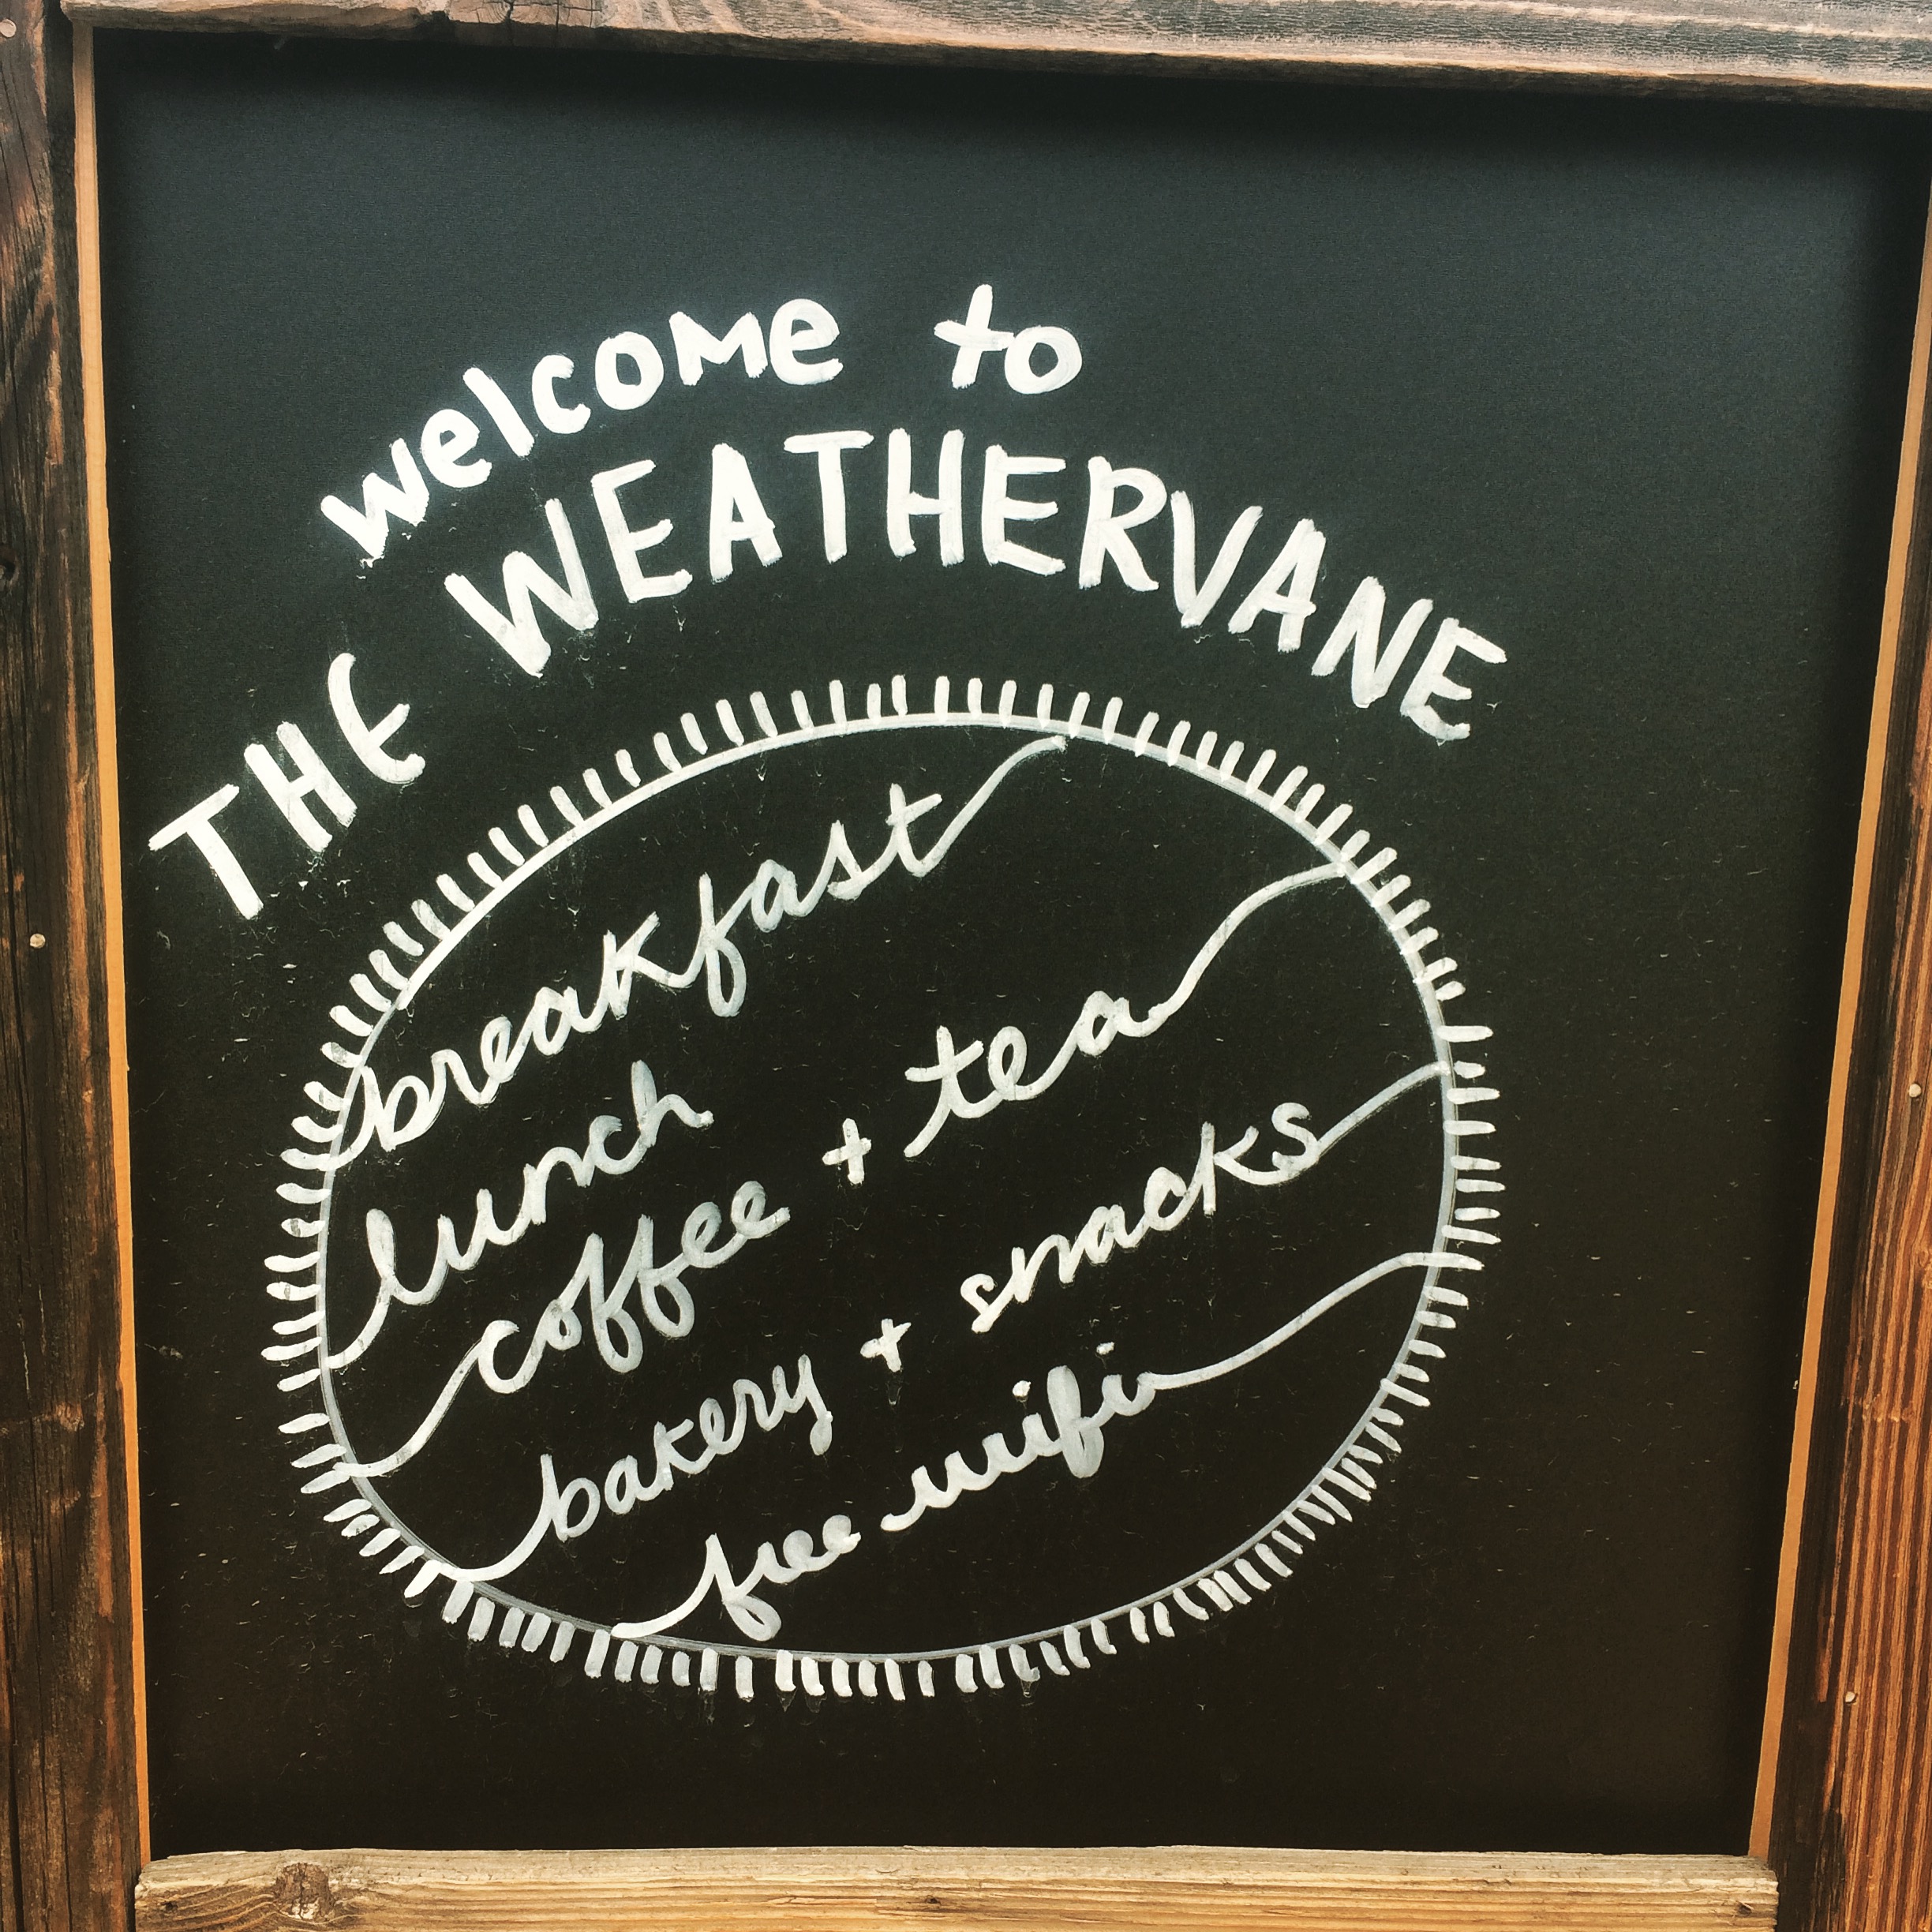 welcome to
THE WEATHERVANE
breakfast
lunch
coffee + tea
bakery + snacks
free wifi